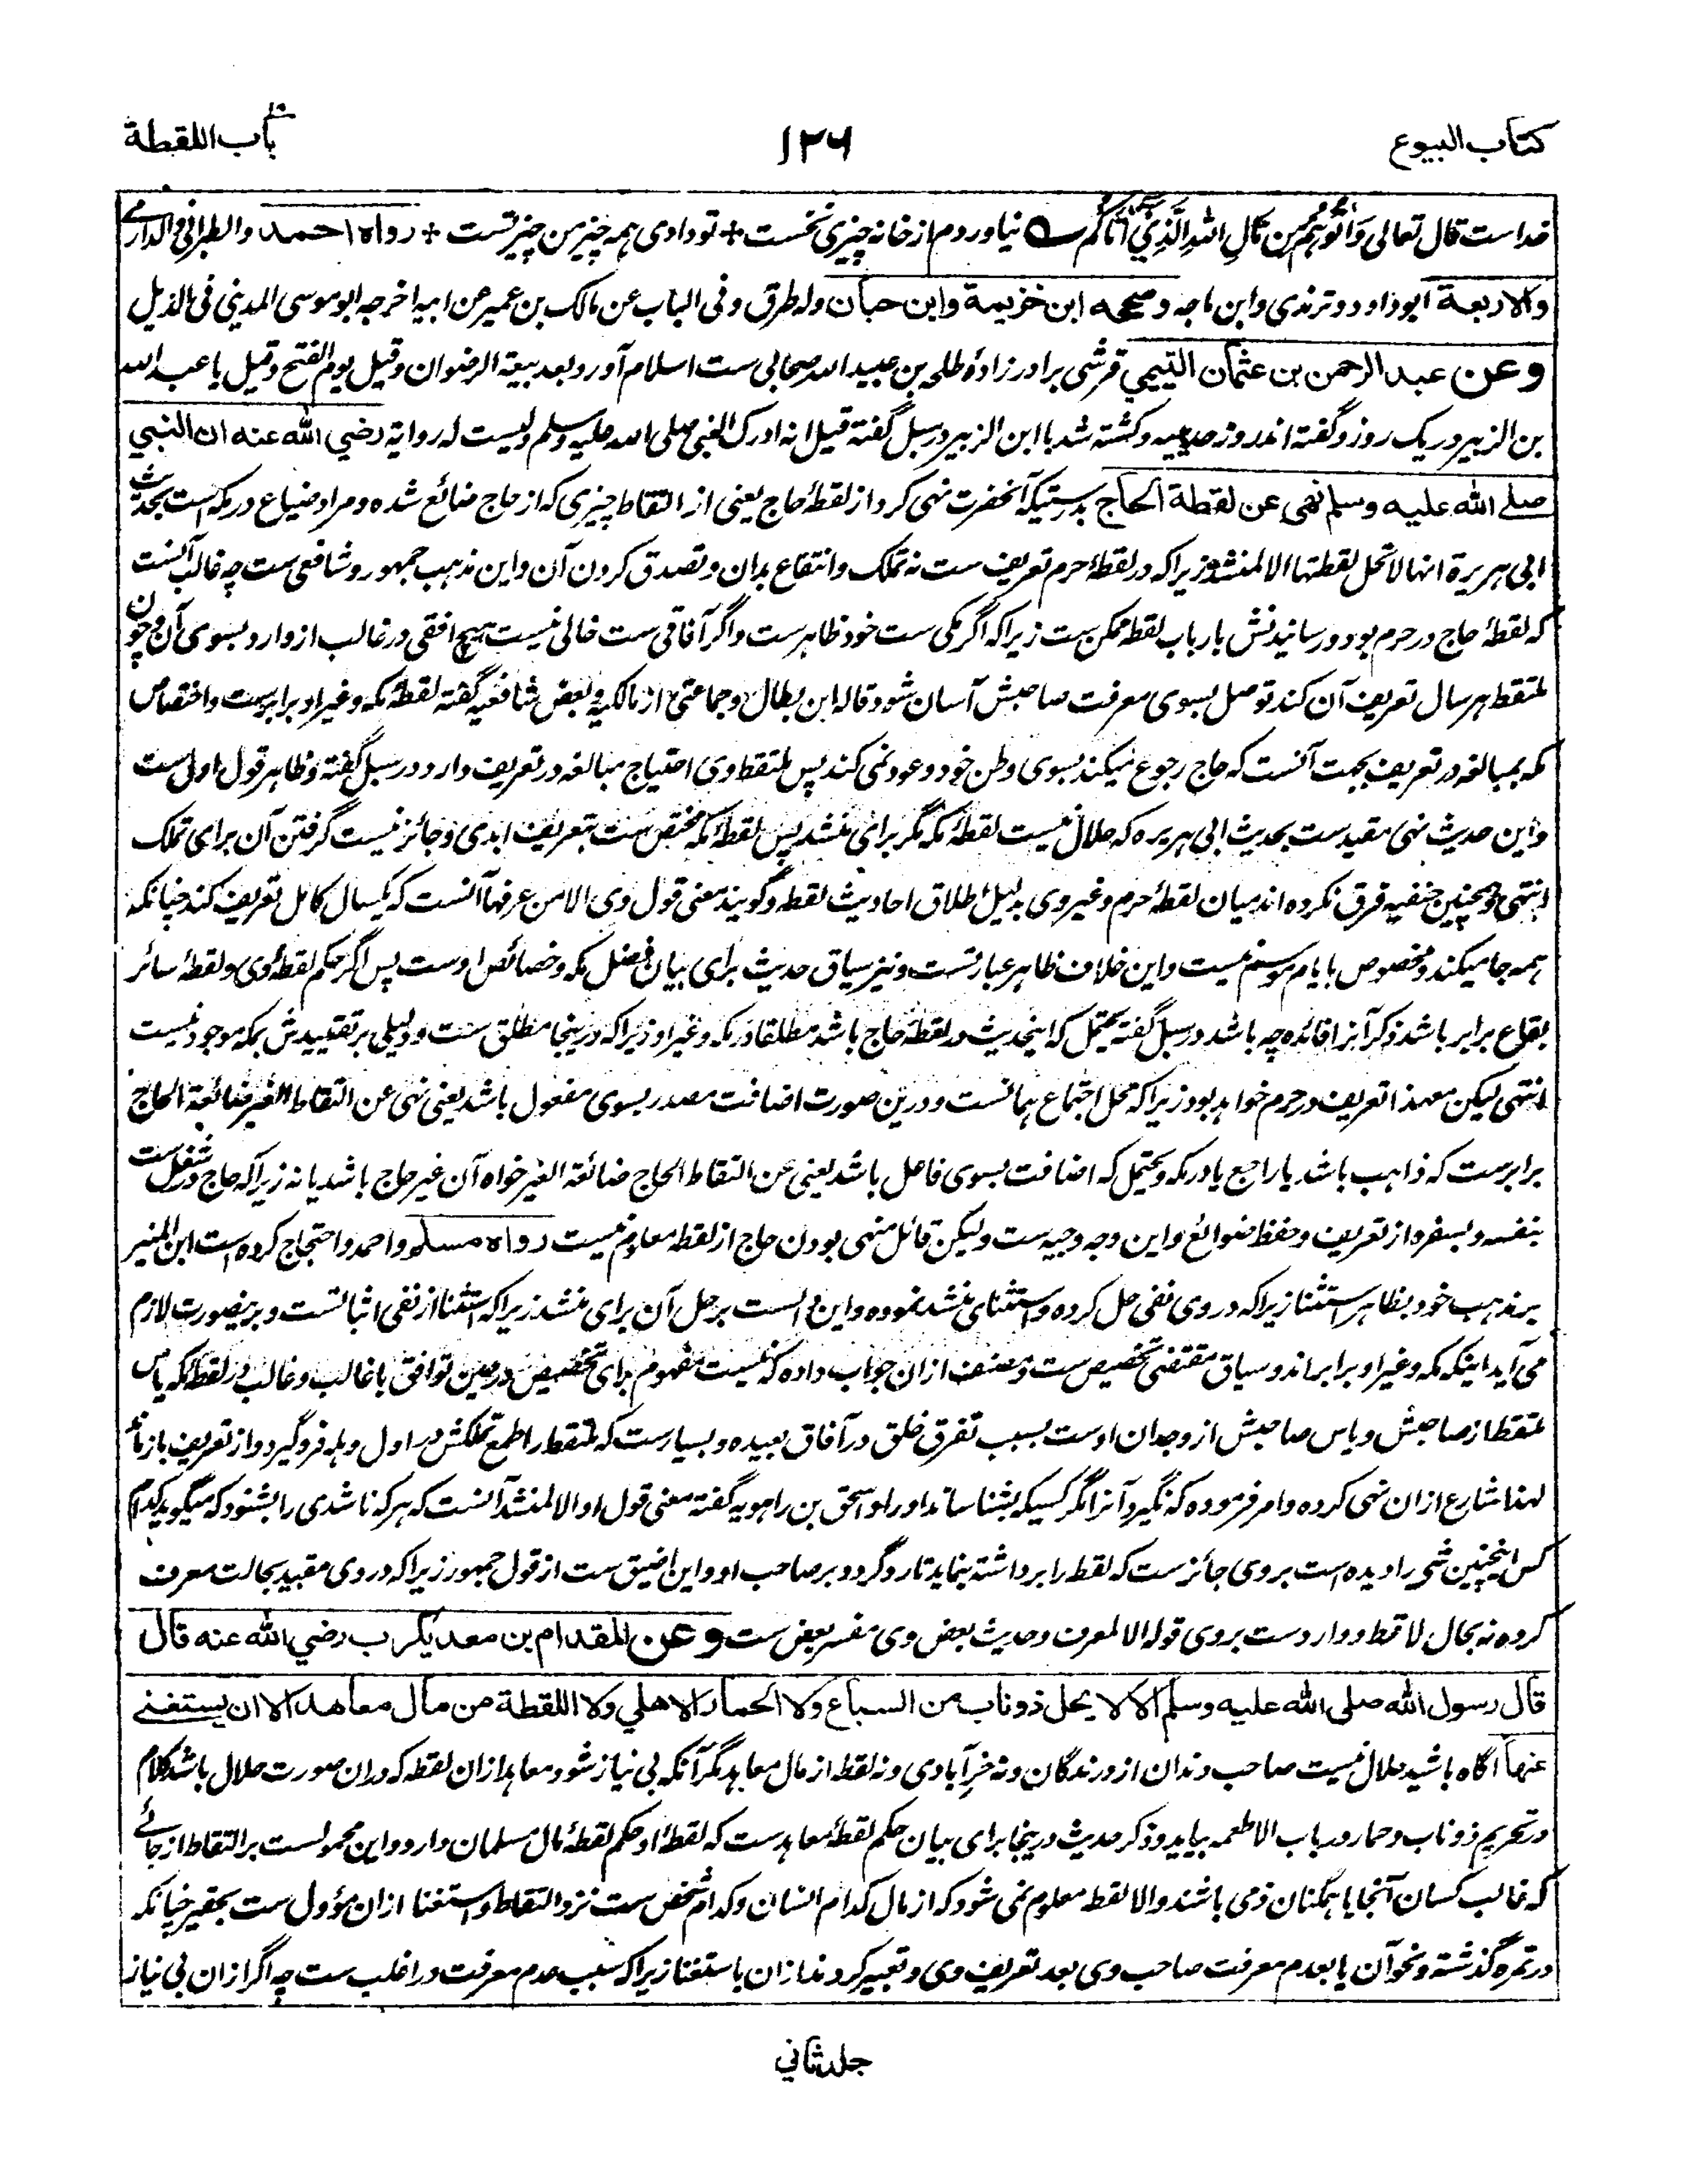 كتاب البيوع
١٢٦
باب اللقطة
خداست قال تعالى وَآتُوهُم مِّن مَّالِ اللَّهِ الَّذِي آتَاكُمْ نیاوردم از خانه چیزی نخست + تو دادی همه چیز من چیز تست + رواه احمد والطبرانی والدارمے
والاربعة ابوداود و ترمذی وابن ماجه وصححه ابن خزيمة وابن حبان وله طرق وفی الباب عن مالک بن عمیر عن ابیه اخرجه ابوموسی المدینی فی الذیل
وعن عبد الرحمن بن عثمان التيمي قرشی برادرزادهٔ طلحه بن عبید الله صحابی ست اسلام آورد بعد بیعة الرضوان وقیل یوم الفتح وقیل با عبد الله
بن الزبیر در یک روز و گفته اند روز حدیبیه و کشته شد با ابن الزبیر در سبل گفته قیل انه ادرک النبی صلی الله علیه وسلم ولیست له روایة رضي الله عنه ان النبي
صلے الله عليه وسلم نهى عن لقطة الحاج بدرستیکه آنحضرت نهی کرد از لقطهٔ حاج یعنی از التقاط چیزی که از حاج ضائع شده و مراد ضیاع در مکه است بحدیث
ابی هریرة انها لا تحل لقطتها الا لمنشد زیرا که در لقطهٔ حرم تعریف ست نه تملک و انتفاع بدان و تصدق کردن آن و این مذهب جمهور و شافعی ست چه غالب آنست
که لقطهٔ حاج در حرم بود و رسانیدنش بارباب لقطه ممکن ست زیرا که اگر مکی ست خود ظاهر ست و اگر آفاقی ست خالی نیست هیچ افقی در غالب از وارد بسوی آن و چون
ملتقط هر سال تعریف آن کند توصل بسوی معرفت صاحبش آسان شود قاله ابن بطال و جماعتی از مالکیه و بعض شافعیه گفته لقطهٔ مکه و غیر او برابرست و اختصاص
مکه بمبالغه در تعریف بجهت آنست که حاج رجوع میکند بسوی وطن خود و عود نمی کند پس ملتقط وی احتیاج مبالغه در تعریف دارد در سبل گفته و ظاهر قول اول ست
و این حدیث نهی مقید ست بحدیث ابی هریره که حلال نیست لقطهٔ مکه مگر برای منشد پس لقطهٔ مکه مختص ست بتعریف ابدی و جائز نیست گرفتن آن برای تملک
انتهی و همچنین حنفیه فرق نکرده اند میان لقطهٔ حرم و غیر وی بدلیل اطلاق احادیث لقطه و گویند معنی قول وی الا من عرفها آنست که یکسال کامل تعریف کند چنانکه
همه جا میکند و مخصوص بایام موسم نیست و این خلاف ظاهر عبارتست و نیز سیاق حدیث برای بیان فضل مکه و خصائص اوست پس اگر حکم لقطهٔ وی و لقطهٔ سائر
بقاع برابر باشد ذکر آنرا فائده چه باشد در سبل گفته یحتمل که اینحدیث در لقطهٔ حاج باشد مطلقا در مکه و غیر او زیرا که درینجا مطلق ست و دلیلی بر تقییدش بمکه موجود نیست
انتهی لیکن معهذا تعریف در حرم خواهد بود زیرا که محل اجتماع همانست و درین صورت اضافت مصدر بسوی مفعول باشد یعنی نهی عن التقاط الغیر ضائعة الحاج
برابرست که ذاهب باشد یا راجع یا در مکه و یحتمل که اضافت بسوی فاعل باشد یعنی عن التقاط الحاج ضائعة الغیر خواه آن غیر حاج باشد یا نه زیرا که حاج در شغل ست
بنفسه و بسفره از تعریف و حفظ ضوائع و این وجه وجیه ست ولیکن قائل منهی بودن حاج از لقطه معلوم نیست رواه مسلم و احمد و احتجاج کرده است ابن المنیر
بر مذهب خود بظاهر استثنا زیرا که در وی نفی حل کرده و استثنای منشد نموده و این دالست بر حل آن برای منشد زیرا که استثنا از نفی اثباتست و برینصورت لازم
می آید اینکه مکه و غیر او برابراند و سیاق مقتضی تخصیص ست و مصنف ازان جواب داده که نیست مفهوم برای تخصیص در حین توافق با غالب و غالب در لقطهٔ مکه یاس
ملتقط از صاحبش و یاس صاحبش از وجدان اوست بسبب تفرق خلق در آفاق بعیده و بسیارست که ملتقط را طمع تملکش در اول وهله فرو گیرد و از تعریف باز ماند
لهذا شارع ازان نهی کرده و امر فرموده که نگیرد آنرا مگر کسیکه بشناساند او را و اسحق بن راهویه گفته معنی قول او الا لمنشد آنست که هر که ناشدی را بشنود که میگوید کدام
کس اینچنین شی را دیده است بر وی جائزست که لقطه را برداشته بنماید تا رد گردد بر صاحب او و این اضیق ست از قول جمهور زیرا که در وی مقید بحالت معرف
کرده نه بحال لاقط و واردست بر وی قوله الا لمعرف و حدیث بعض وی مفسر بعض ست وعن المقدام بن معديكرب رضي الله عنه قال
قال رسول الله صلى الله عليه وسلم الا لا يحل ذو ناب من السباع ولا الحمار الاهلي ولا اللقطة من مال معاهد الا ان يستغنے
عنها آگاه باشید حلال نیست صاحب دندان از درندگان و نه خر آبادی و نه لقطه از مال معاهد مگر آنکه بی نیاز شود معاهد ازان لقطه که دران صورت حلال باشد کلام
در تحریم ذو ناب و حمار در باب الاطعمه بیاید و ذکر حدیث درینجا برای بیان حکم لقطهٔ معاهدست که لقطهٔ او حکم لقطهٔ مال مسلمان دارد و این محمولست بر التقاط از جائے
که غالب کسان آنجا یا همگنان ذمی باشند والا لقطه معلوم نمی شود که از مال کدام انسان و کدام شخص ست نزد التقاط و استغنا ازان مؤول ست بحقیر چنانکه
در تمره گذشته و نحو آن یا بعدم معرفت صاحب وی بعد تعریف وی و تعبیر کردند ازان باستغنا زیرا که سبب عدم معرفت در اغلب ست چه اگر ازان بی نیاز
جلد ثاني